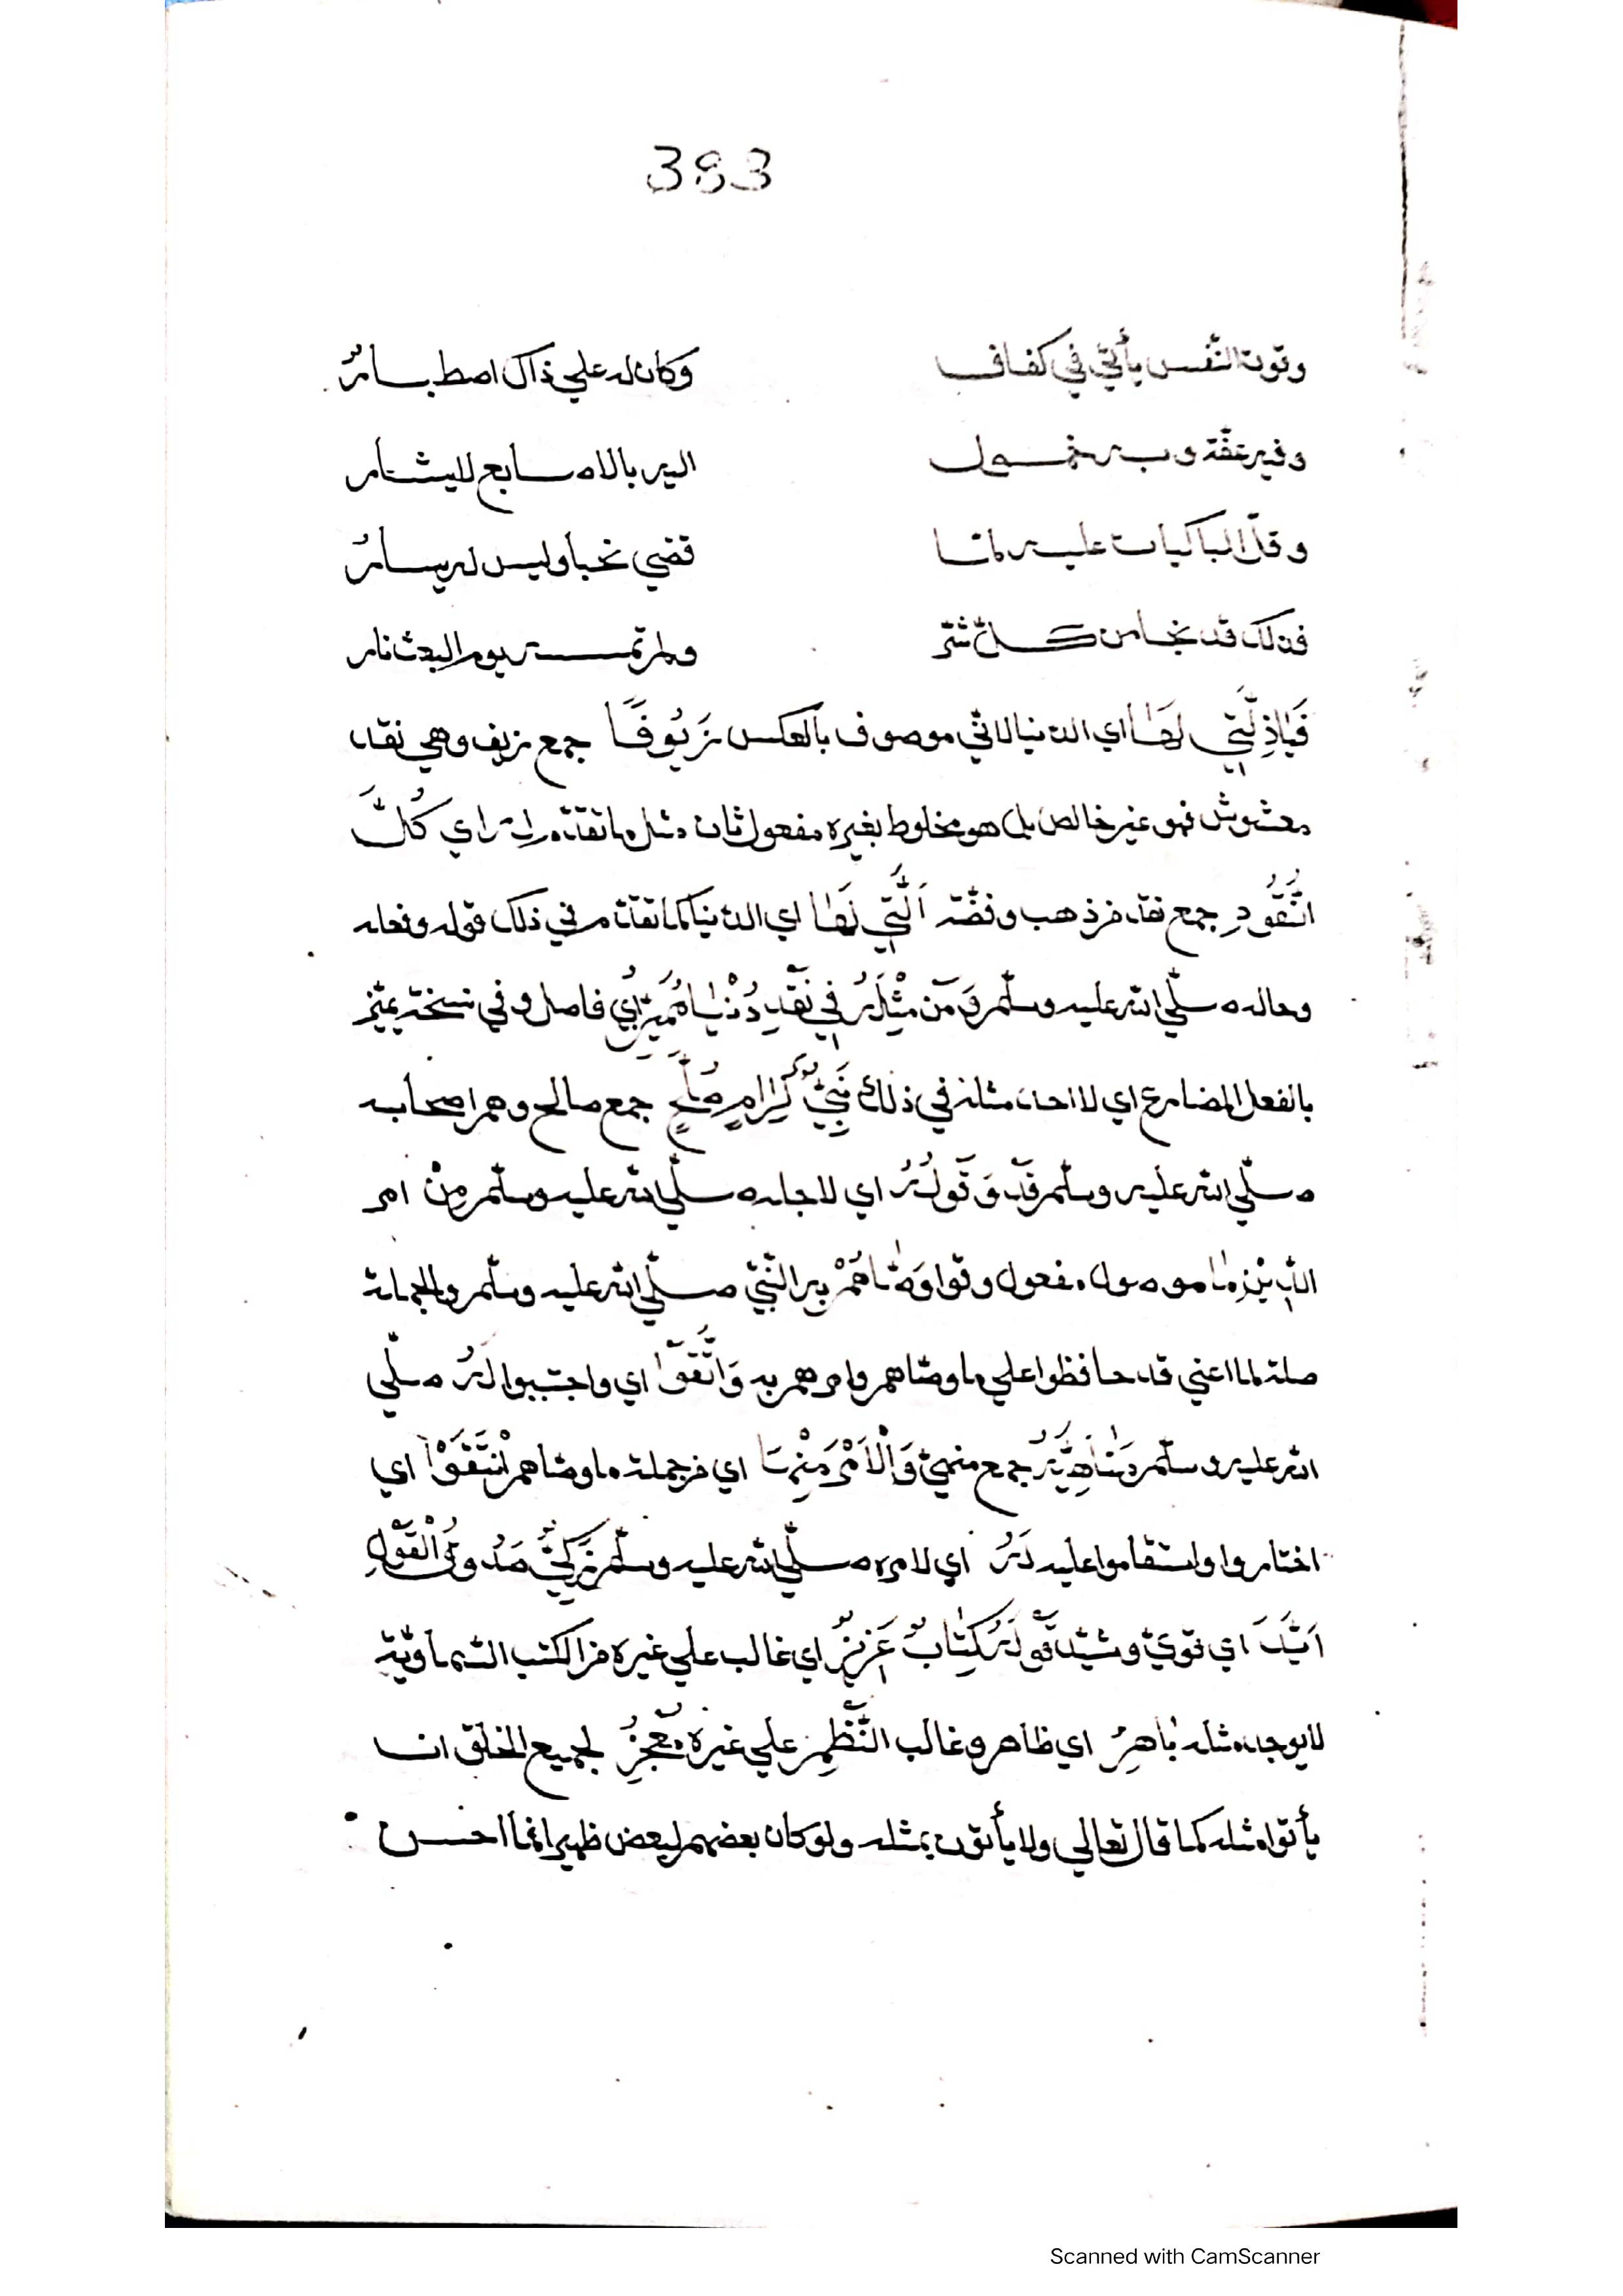 383
وقوت النّفس يأتي في كفاف وكان له علي ذاك اصطبارٌ
وفيه عفّة وبه خمول اليه بالاصابع لايشار
وقلّ الباكيات عليه لمّا قضي نحبا وليس له يسارٌ
فذلك قد نجا من كلّ شرّ ولم تمسّه يوم البعث نار
اي الدنيا لانّي موصوف بالعكس زَيُوفًا جمع زيف وهي نقد
مغشوش فهو غير خالص بل هو مخلوط بغيره مفعول ثان مثل ما نقدته اي كُلَّ
النُّقُودِ جمع نقد من ذهب وفضّة اَلَّتِي لَهَا اي الدنيا كما تقدّم في ذلك قوله وفعله
وحاله صلّي الله عليه وسلّم وَمَنْ مِثْلُهُ فِي نَقْدِ دُنْيَاهُ اي فاصل وفي نسخة يميّز
بالفعل المضارع اي لا احد مثله في ذلك نَبِيٌّ كِرَامٍ صُلَّحٍ جمع صالح وهم اصحابه
صلّي الله عليه وسلّم قَدْ وَقَوْا لَهُ اي لاجله صلّي الله عليه وسلّم مِنْ امر
الدِّيْنِ مَا موصول مفعول وقوا وَصَّاهُمْ به النّبيّ صلّي الله عليه وسلّم والجملة
صلة لما اعني قد حافظوا علي ما وصّاهم وامرهم به وَاتَّقَوْا اي واجتنبوا لَهُ صلّي
الله عليه وسلّم مَنَاهِيَّهُ جمع منهيّ وَالْاَمْرَ مِنْهَا اي من جملة ما وصّاهم انْتَقَوْا اي
اختاروا واستقاموا عليه لَهُ اي لامره صلّي الله عليه وسلّم زَكِيٌّ صَدُوقُ الْقَوْلِ
اَيَّدَ اي قوي وشيّد قَوْلَهُ كِتَابٌ عَزِيزٌ اي غالب علي غيره من الكتب السّماويّة
لا يوجد مثله بَاهِرُ اي ظاهر وغالب النَّظْمِ علي غيره مُعْجِزُ لجميع الخلق ان
يأتوا مثله كما قال تعالي ولا يأتون بمثله ولو كان بعضهم لبعض ظهيرا احسن
Scanned with CamScanner